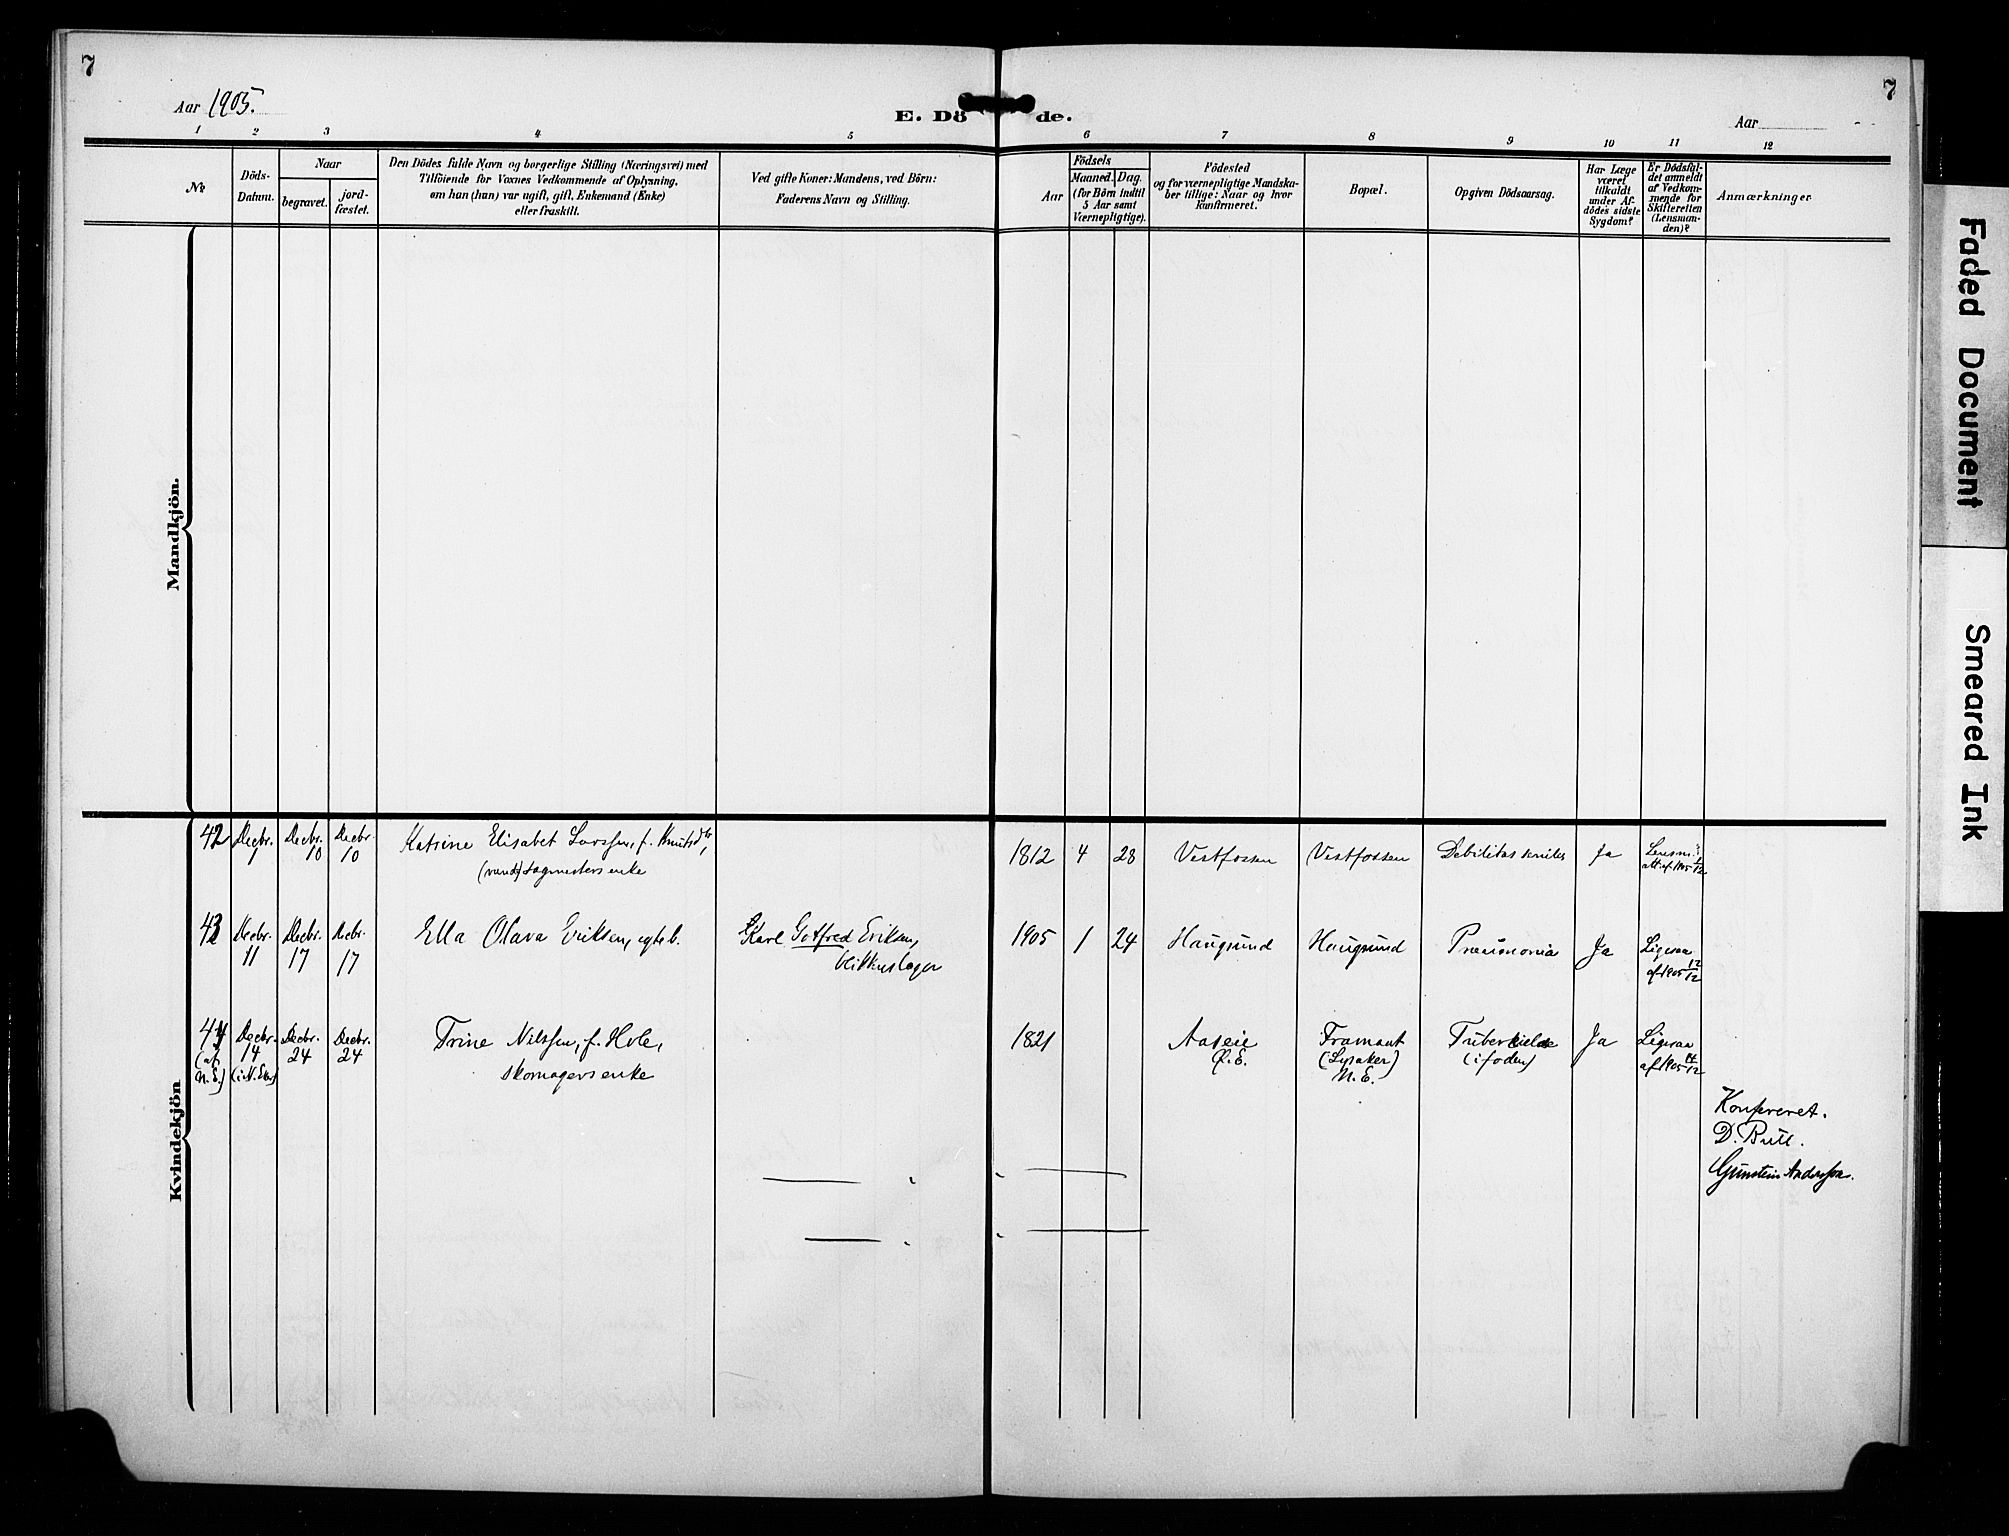 7
7
Aar 1905.
E. Dö de.
Aar
1 2 3 4 5 6 7 8 9 10 11 12
No
Döds-
Datum.
Naar
begravet.
jord-
fæstet.
Den Dödes fulde Navn og borgerlige Stilling (Næringsvei) med
Tilföiende for Voxnes Vedkommende af Oplysning,
om han (hun) var ugift, gift, Enkemand (Enke)
eller fraskilt.
Ved gifte Koner: Mandens, ved Börn:
Faderens Navn og Stilling.
Födsels
Aar
Maaned. Dag.
(for Börn indtil
5 Aar samt
Værnepligtige).
Födested
og for værnepligtige Mandska-
ber tillige: Naar og hvor
konfirmeret.
Bopæl.
Opgiven Dödsaarsag.
Har Læge
været
tilkaldt
under Af-
dödes sidste
Sygdom?
Er Dödsfal-
det anmeldt
af Vedkom-
mende for
Skifteretten
(Lensman-
den)?
Anmærkninger
Mandkjön.
Kvindekjön
42 Decbr. 7 Decbr. 10 Decbr. 10
Katrine Elisabet Larssen, f. Knutsdtr,
sagmesters enke
1812 4 28 Vestfossen Vestfossen Debilitas senilis Ja Lensm.
att. af 1905
43 Decbr. 11 Decbr. 17 Decbr. 17
Ella Olava Eriksen, egteb.
Karl Gotfred Eriksen,
blikkenslager
1905 1 24 Haugsund Haugsund Pneumonia Ja Ligesaa
af 1905 12/12
44 Decbr. 14 Decbr. 24 Decbr. 24
(at
N.E.)
Trine Nilssen, f. Hole,
skomagers enke
1821 Aaseie
Ø.E.
(Lysaker)
N.E.
(i foden)
Ja Ligesaa
af 1905 14/12
Konfereret.
D. Bull.
Gunstein Anderssen.
Faded Document
Smeared Ink